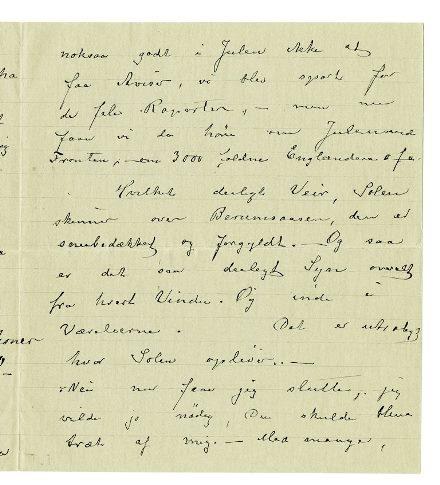 noksaa godt i Julen ikke at
faa Aviser, vi blev spart for
de fæle Raporter, – men nu
faar vi da høre om Julen ved
Fronten, – om 3000 faldne Englændere o f
Hvilket deiligt Veir, Solen
skinner over Berumsaasen, den er
snebedækket og forgyldt. – Og saa
er det saa deiligt Syn
fra hvert Vindu. Og inde i
Værelserne. Det er
hvor Solen opliver. –
Nei nu faar jeg slutte, jeg
vilde jo nødig, Du skulde blive
træt af mig. – Med mange,